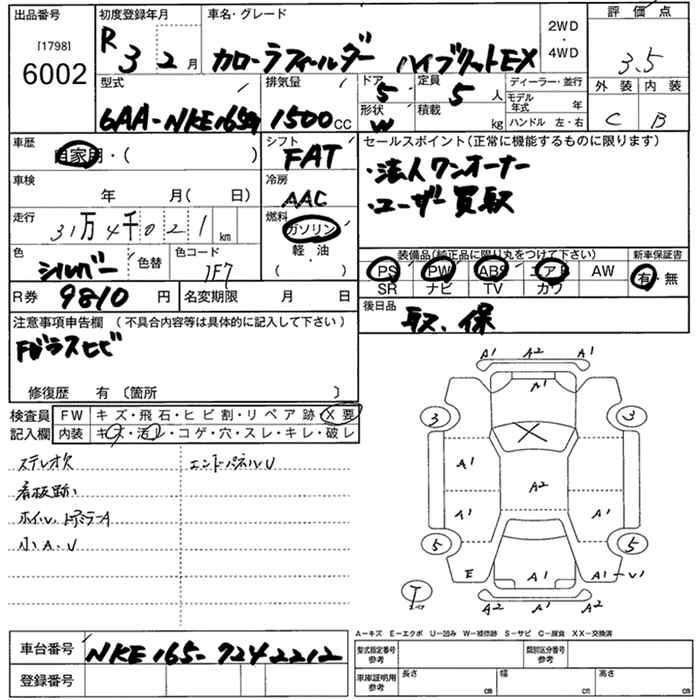 出品番号
[1798]
6002
初度登録年月
R 3 2月
車名・グレード
カローラフィールダー ハイブリットEX
2WD
・
4WD
評価点
3.5
型式
6AA-NKE165G
排気量
1500 CC
ドア
5
形状
W
定員
5人
積載
kg
ディーラー・並行
モデル年式 年
ハンドル 左・右
外装
C
内装
B
車歴
自家用・( )
シフト
FAT
車検
年 月( 日)
冷房
AAC
走行
31万4千021km
燃料
ガソリン
軽・油
( )
色
シルバー
色替
色コード
1F7
R券 9810円
名変期限 月 日
セールスポイント(正常に機能するものに限ります)
・法人ワンオーナー
・ユーザー買取
装備品(純正品に限り丸をつけて下さい)
新車保証書
PS PW ABS エアB AW
SR ナビ TV カワ
有・無
後日品
取、保
注意事項申告欄(不具合内容等は具体的に記入して下さい)
Fガラスヒビ
修復歴 有〔箇所 〕
検査員記入欄
FW キズ・飛石・ヒビ割・リペア跡 X要
内装 キズ・汚レ・コゲ・穴・スレ・キレ・破レ
ステレオ欠
エンドパネルU
看板跡
ホイル、ドアミラーA
小A、U
A1 A2 A1
A1
3
3
A1
A1
A2
A1
A1
5
5
E
A1
A1-U1
A2 A2 A2
A−キズ E−エクボ U−凹み W−補修跡 S−サビ C−腐食 XX−交換済
車台番号
NKE165-7242212
登録番号
型式指定番号
参考
類別区分番号
参考
車庫証明用
参考
長さ
cm
幅
cm
高さ
cm